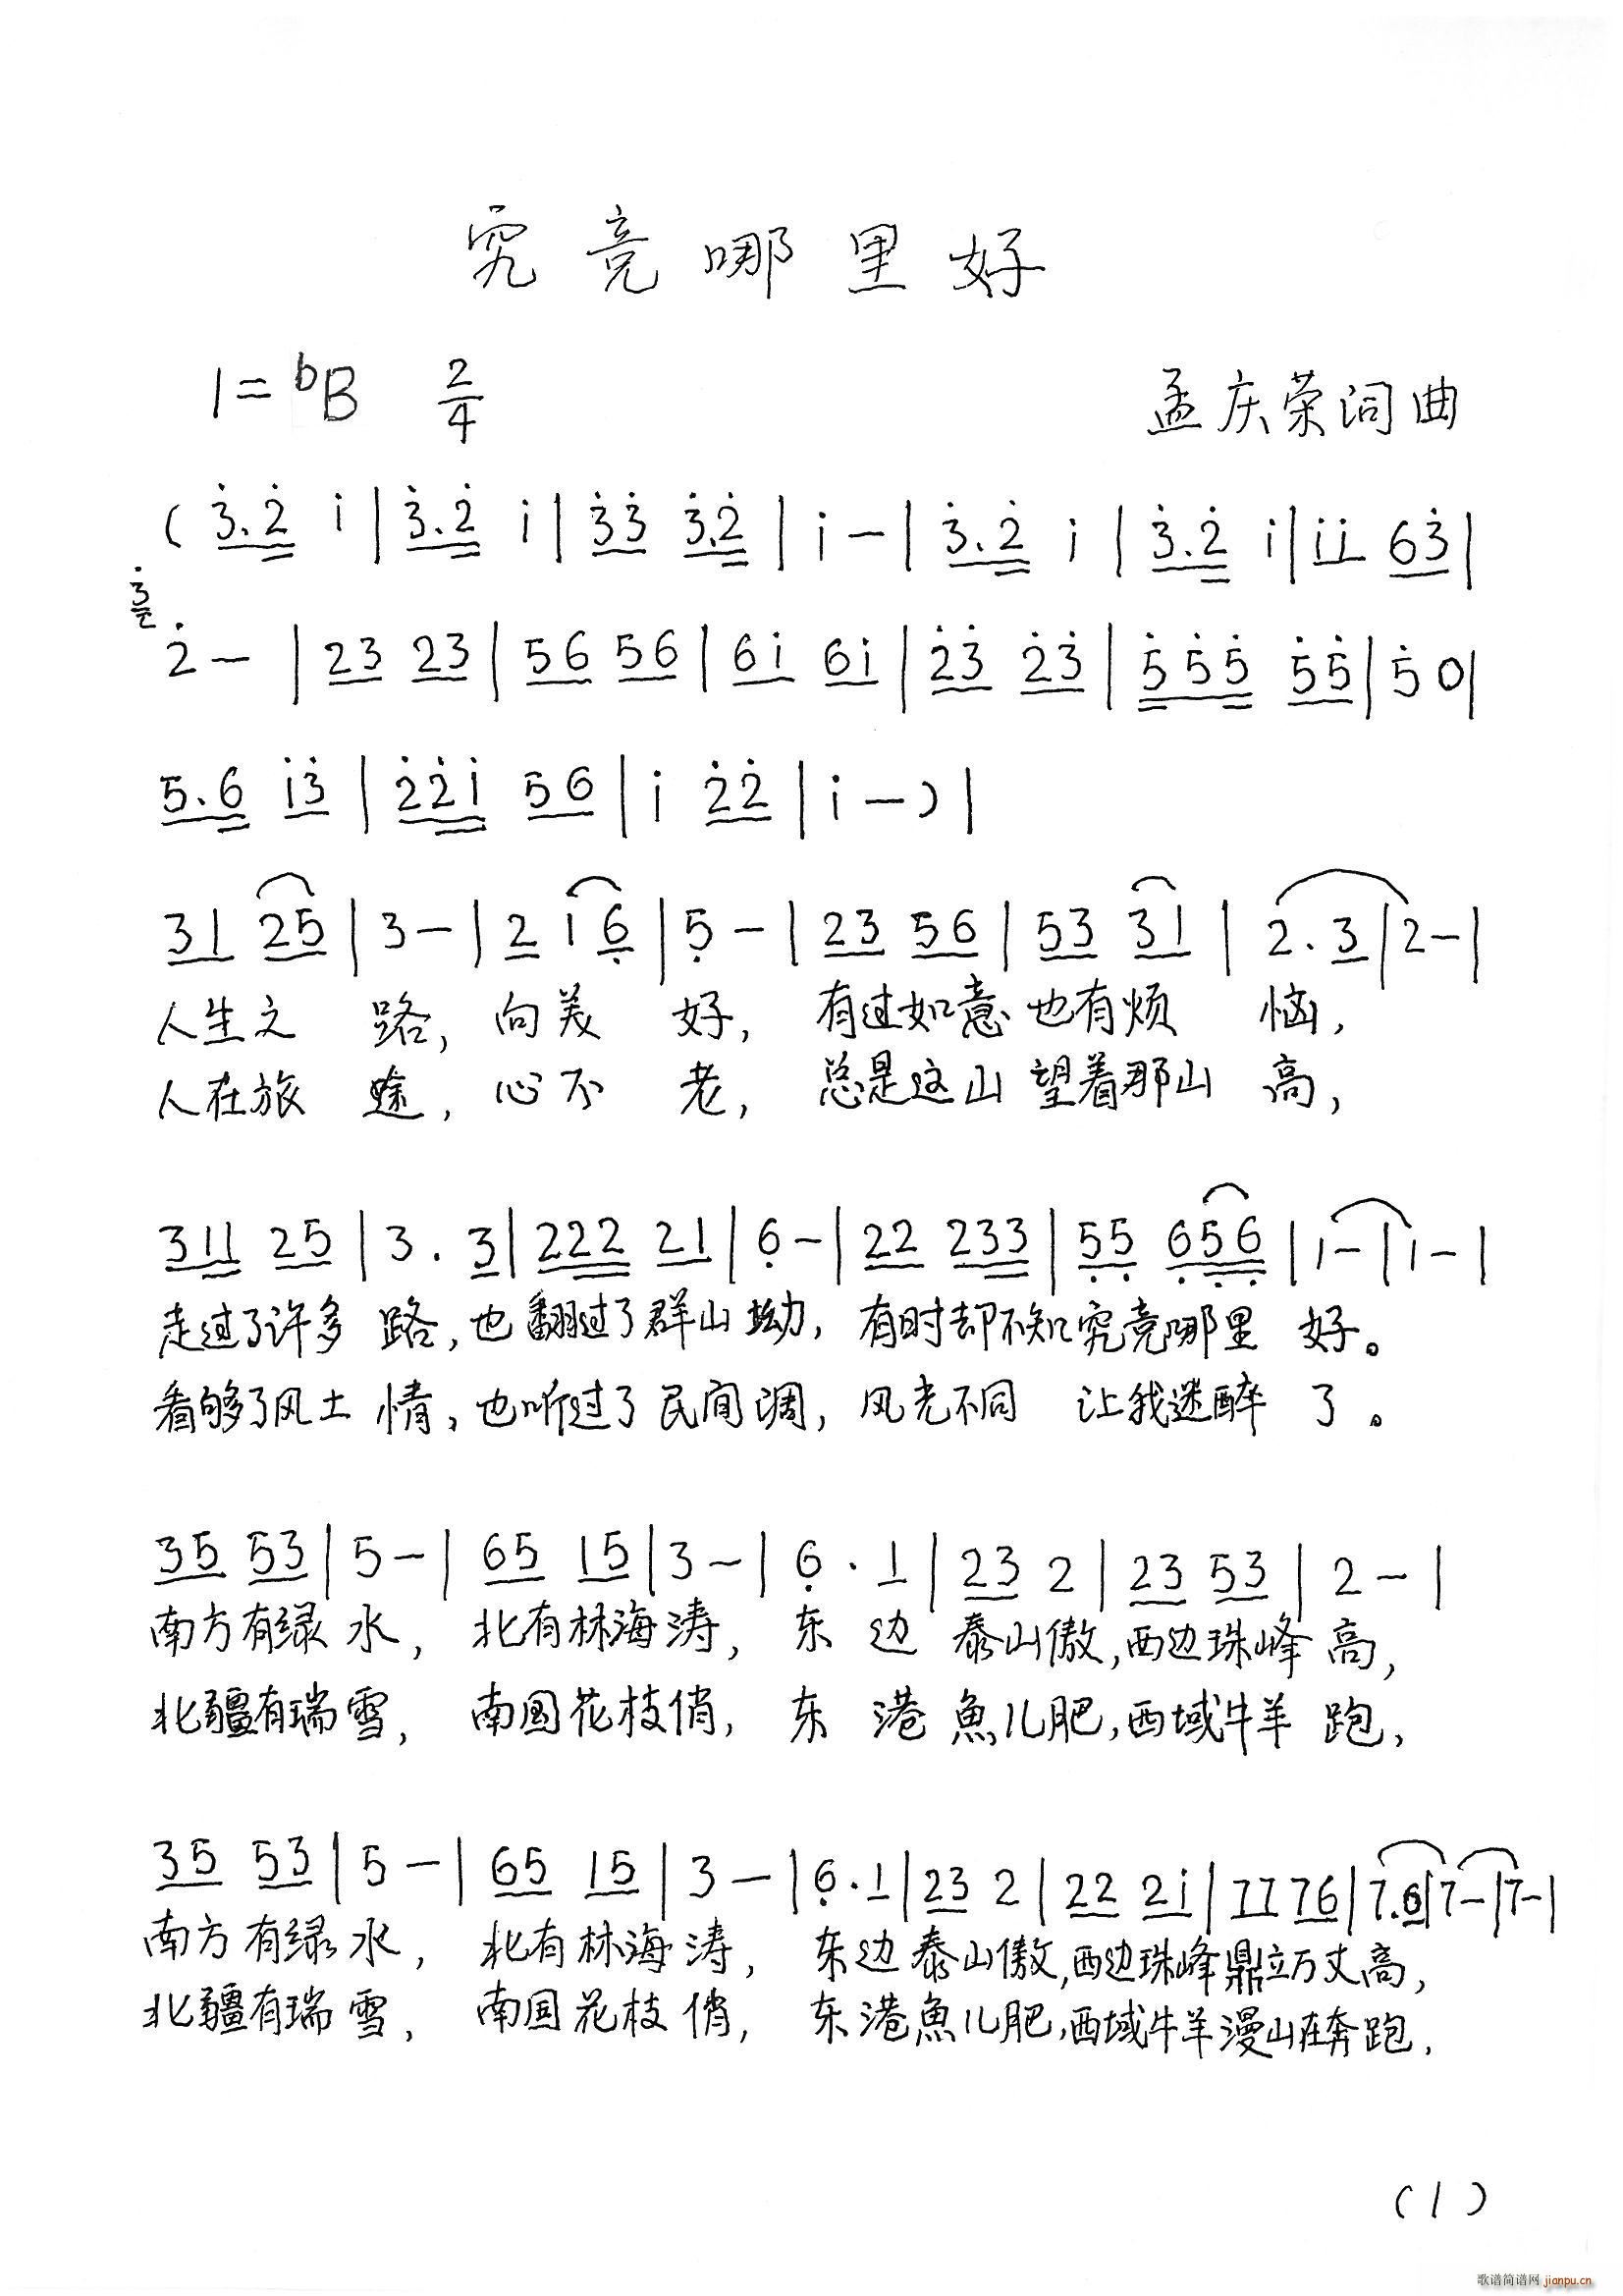 究竟哪里好
1=bB 2/4 孟庆荣词曲
( 3̇.2̇ i | 3̇.2̇ i | 3̇3̇ 3̇.2̇ | i - | 3̇.2̇ i | 3̇.2̇ i | ii 63̇ |
2̇ - | 23 23 | 56 56 | 6i 6i | 2̇3̇ 2̇3̇ | 5̇5̇5̇ 5̇5̇ | 5̇ 0 |
5.6 i3̇ | 2̇2̇i 56 | i 2̇2̇ | i - ) |
31 25 | 3 - | 2 1 6̣ | 5̣ - | 23 56 | 53 31 | 2.3 | 2 - |
人生之 路, 向美 好, 有过如意也有烦 恼,
人在旅 途, 心不 老, 总是这山望着那山 高,
311 25 | 3 . 3 | 222 21 | 6̣ - | 22 233 | 5̣5̣ 6̣5̣6̣ | 1 - | 1 - |
走过了许多 路, 也翻过了群山坳, 有时却不知究竟哪里 好。
看够了风土 情, 也听过了民间调, 风光不同 让我迷醉 了。
35 53 | 5 - | 65 15 | 3 - | 6̣ . 1 | 23 2 | 23 53 | 2 - |
南方有绿水, 北有林海涛, 东 边 泰山傲,西边珠峰高,
北疆有瑞雪, 南国花枝俏, 东 港 魚儿肥,西域牛羊 跑,
35 53 | 5 - | 65 15 | 3 - | 6̣.1 | 23 2 | 22 2i | 77 76 | 7.6 | 7 - | 7 - |
南方有绿水, 北有林海涛, 东边泰山傲,西边珠峰鼎立万丈高,
北疆有瑞雪, 南国花枝俏, 东港魚儿肥,西域牛羊漫山在奔跑.
(1)
歌谱简谱网 jianpu.cn